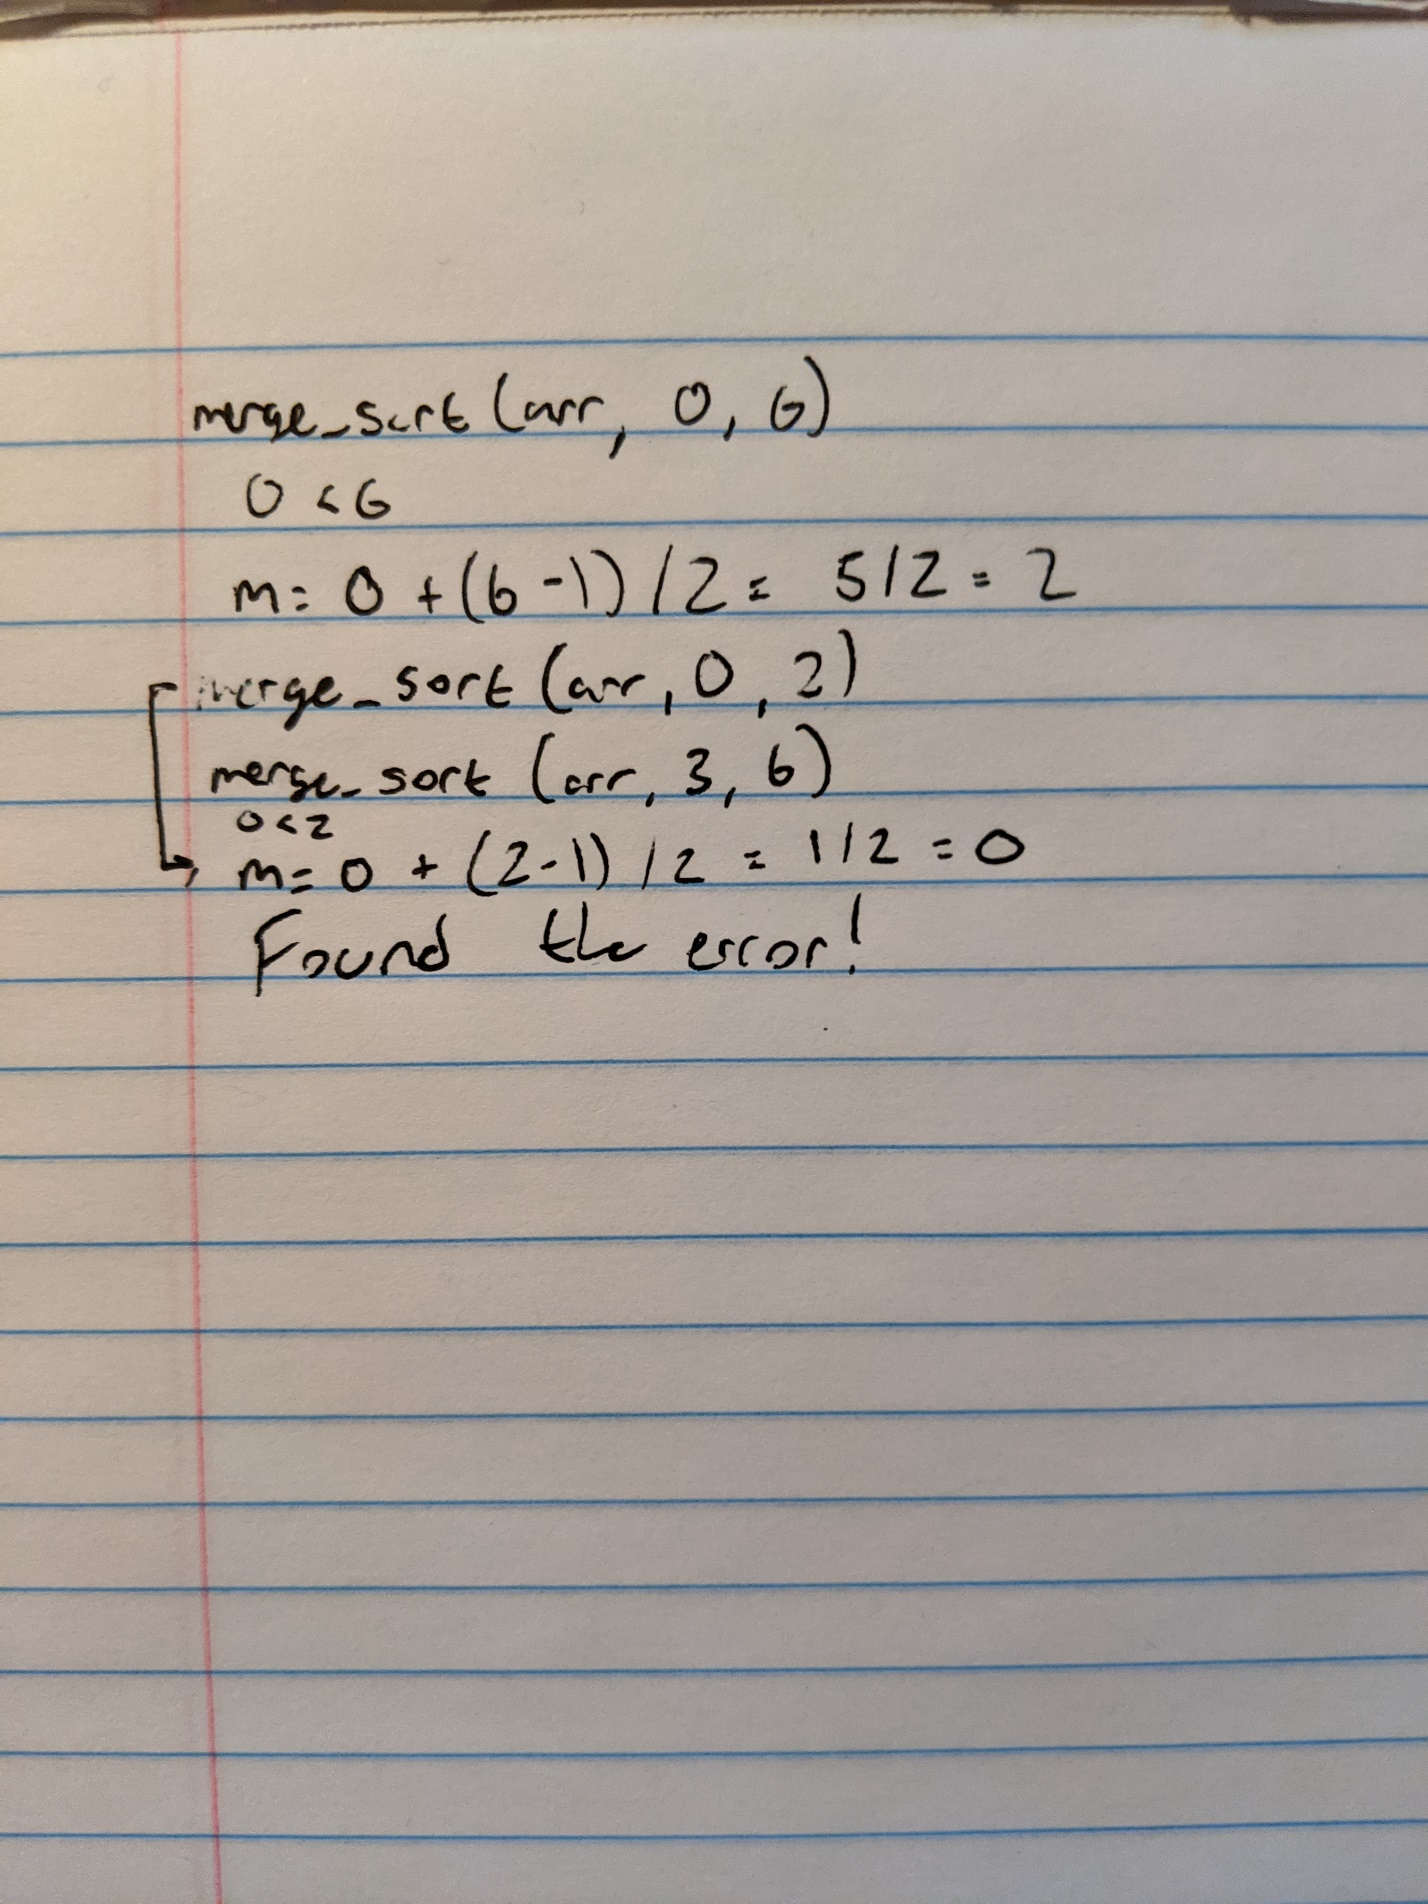 merge_sort (arr, 0, 6)
0 < 6
m = 0 + (6 - 1) / 2 = 5/2 = 2
merge_sort (arr, 0, 2)
merge_sort (arr, 3, 6)
0 < 2
m = 0 + (2 - 1) / 2 = 1/2 = 0
Found the error!